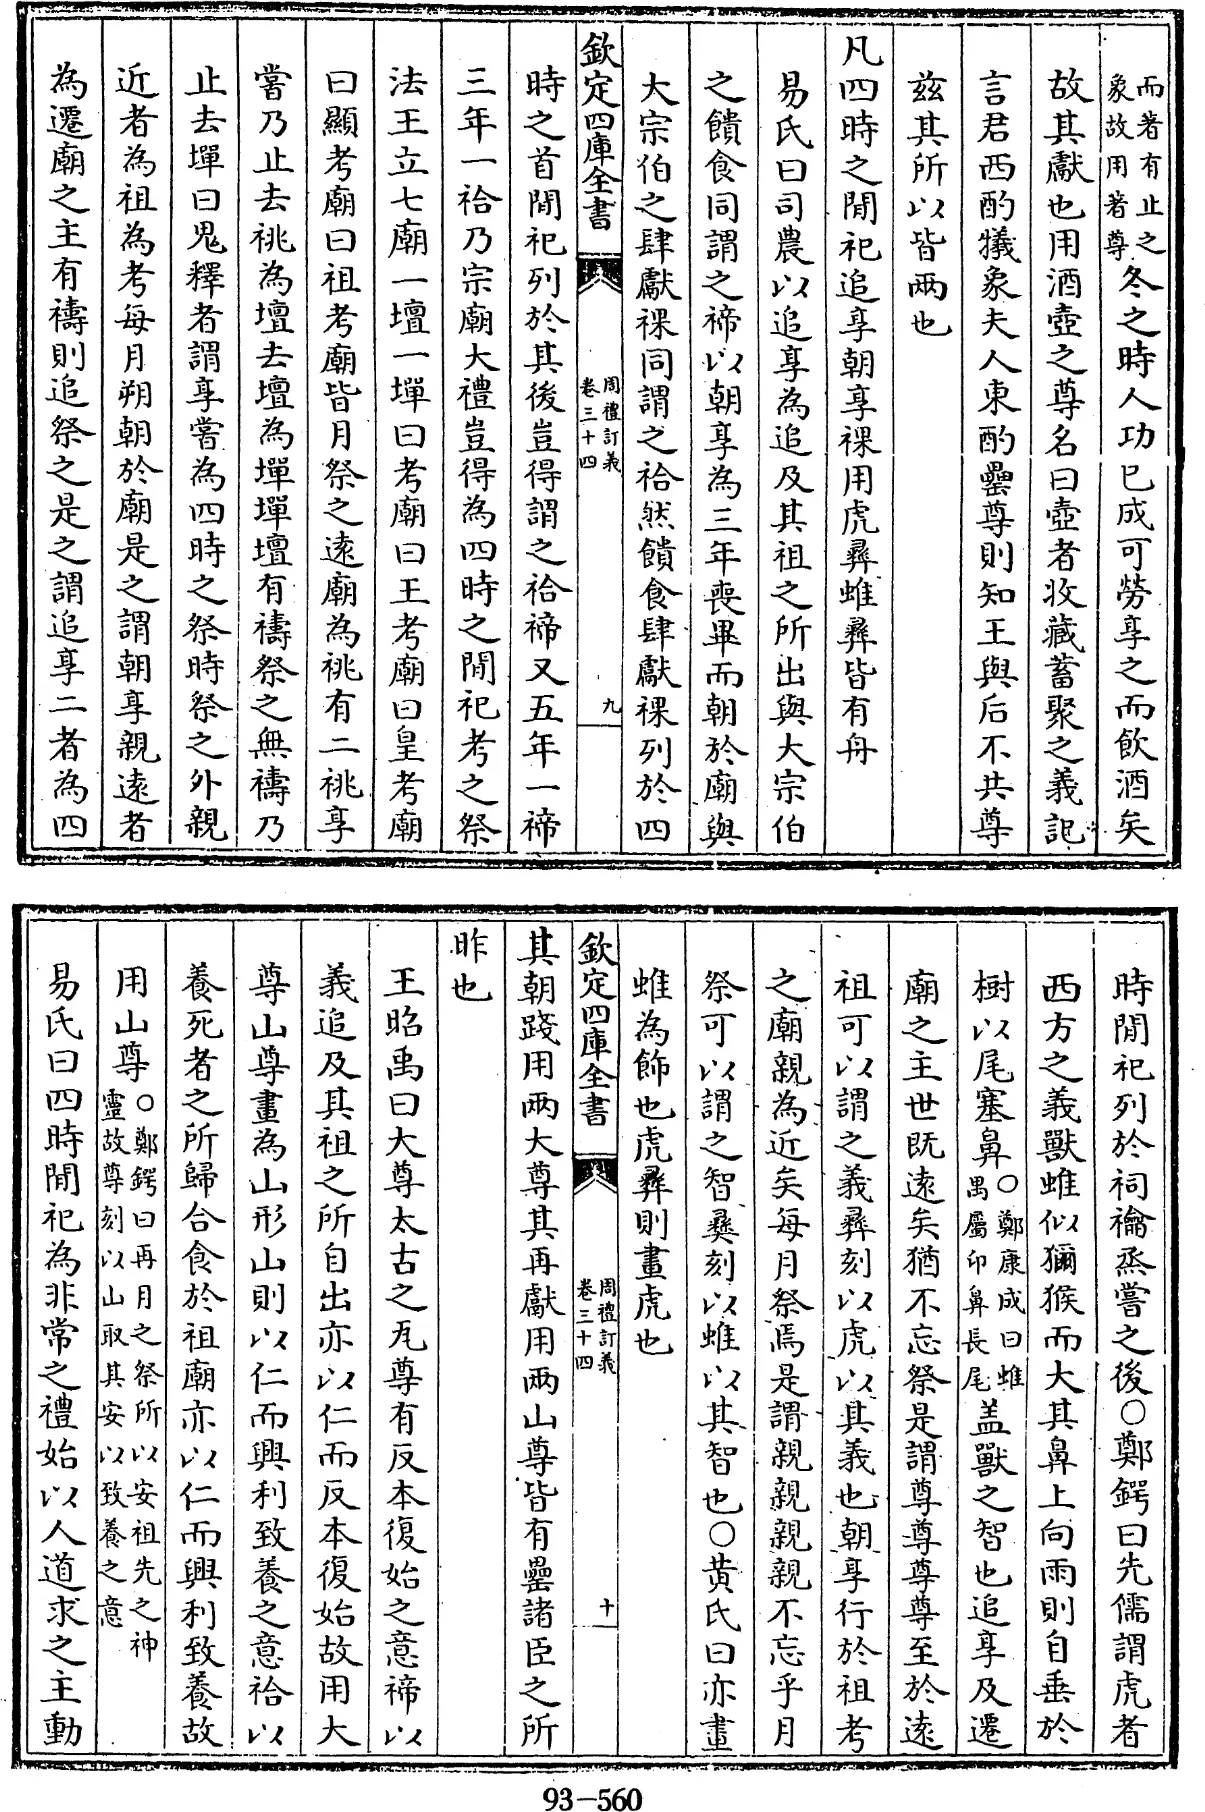 而著有止之
象故用著尊冬之時人功已成可勞享之而飲酒矣
故其獻也用酒壺之尊名曰壺者收藏蓄聚之義記
言君西酌犧象夫人東酌罍尊則知王與后不共尊
兹其所以皆兩也
凡四時之閒祀追享朝享祼用虎彝蜼彝皆有舟
易氏曰司農以追享為追及其祖之所出與大宗伯
之饋食同謂之禘以朝享為三年喪畢而朝於廟與
大宗伯之肆獻祼同謂之祫然饋食肆獻祼列於四
欽定四庫全書
周禮訂義
卷三十四
九
時之首閒祀列於其後豈得謂之祫禘又五年一禘
三年一祫乃宗廟大禮豈得為四時之閒祀考之祭
法王立七廟一壇一墠曰考廟曰王考廟曰皇考廟
曰顯考廟曰祖考廟皆月祭之遠廟為祧有二祧享
嘗乃止去祧為壇去壇為墠墠壇有禱祭之無禱乃
止去墠曰鬼釋者謂享嘗為四時之祭時祭之外親
近者為祖為考每月朔朝於廟是之謂朝享親遠者
為遷廟之主有禱則追祭之是之謂追享二者為四
時閒祀列於祠禴烝嘗之後○鄭鍔曰先儒謂虎者
西方之義獸蜼似獼猴而大其鼻上向雨則自垂於
樹以尾塞鼻○鄭康成曰蜼
禺屬卬鼻長尾盖獸之智也追享及遷
廟之主世既遠矣猶不忘祭是謂尊尊尊尊至於遠
祖可以謂之義彝刻以虎以其義也朝享行於祖考
之廟親為近矣每月祭焉是謂親親親親不忘乎月
祭可以謂之智彝刻以蜼以其智也○黄氏曰亦畫
蜼為飾也虎彝則畫虎也
欽定四庫全書
周禮訂義
卷三十四
十
其朝踐用兩大尊其再獻用兩山尊皆有罍諸臣之所
昨也
王昭禹曰大尊太古之瓦尊有反本復始之意禘以
義追及其祖之所自出亦以仁而反本復始故用大
尊山尊畫為山形山則以仁而興利致養之意祫以
養死者之所歸合食於祖廟亦以仁而興利致養故
用山尊○鄭鍔曰再月之祭所以安祖先之神
靈故尊刻以山取其安以致養之意
易氏曰四時閒祀為非常之禮始以人道求之主動
93-560